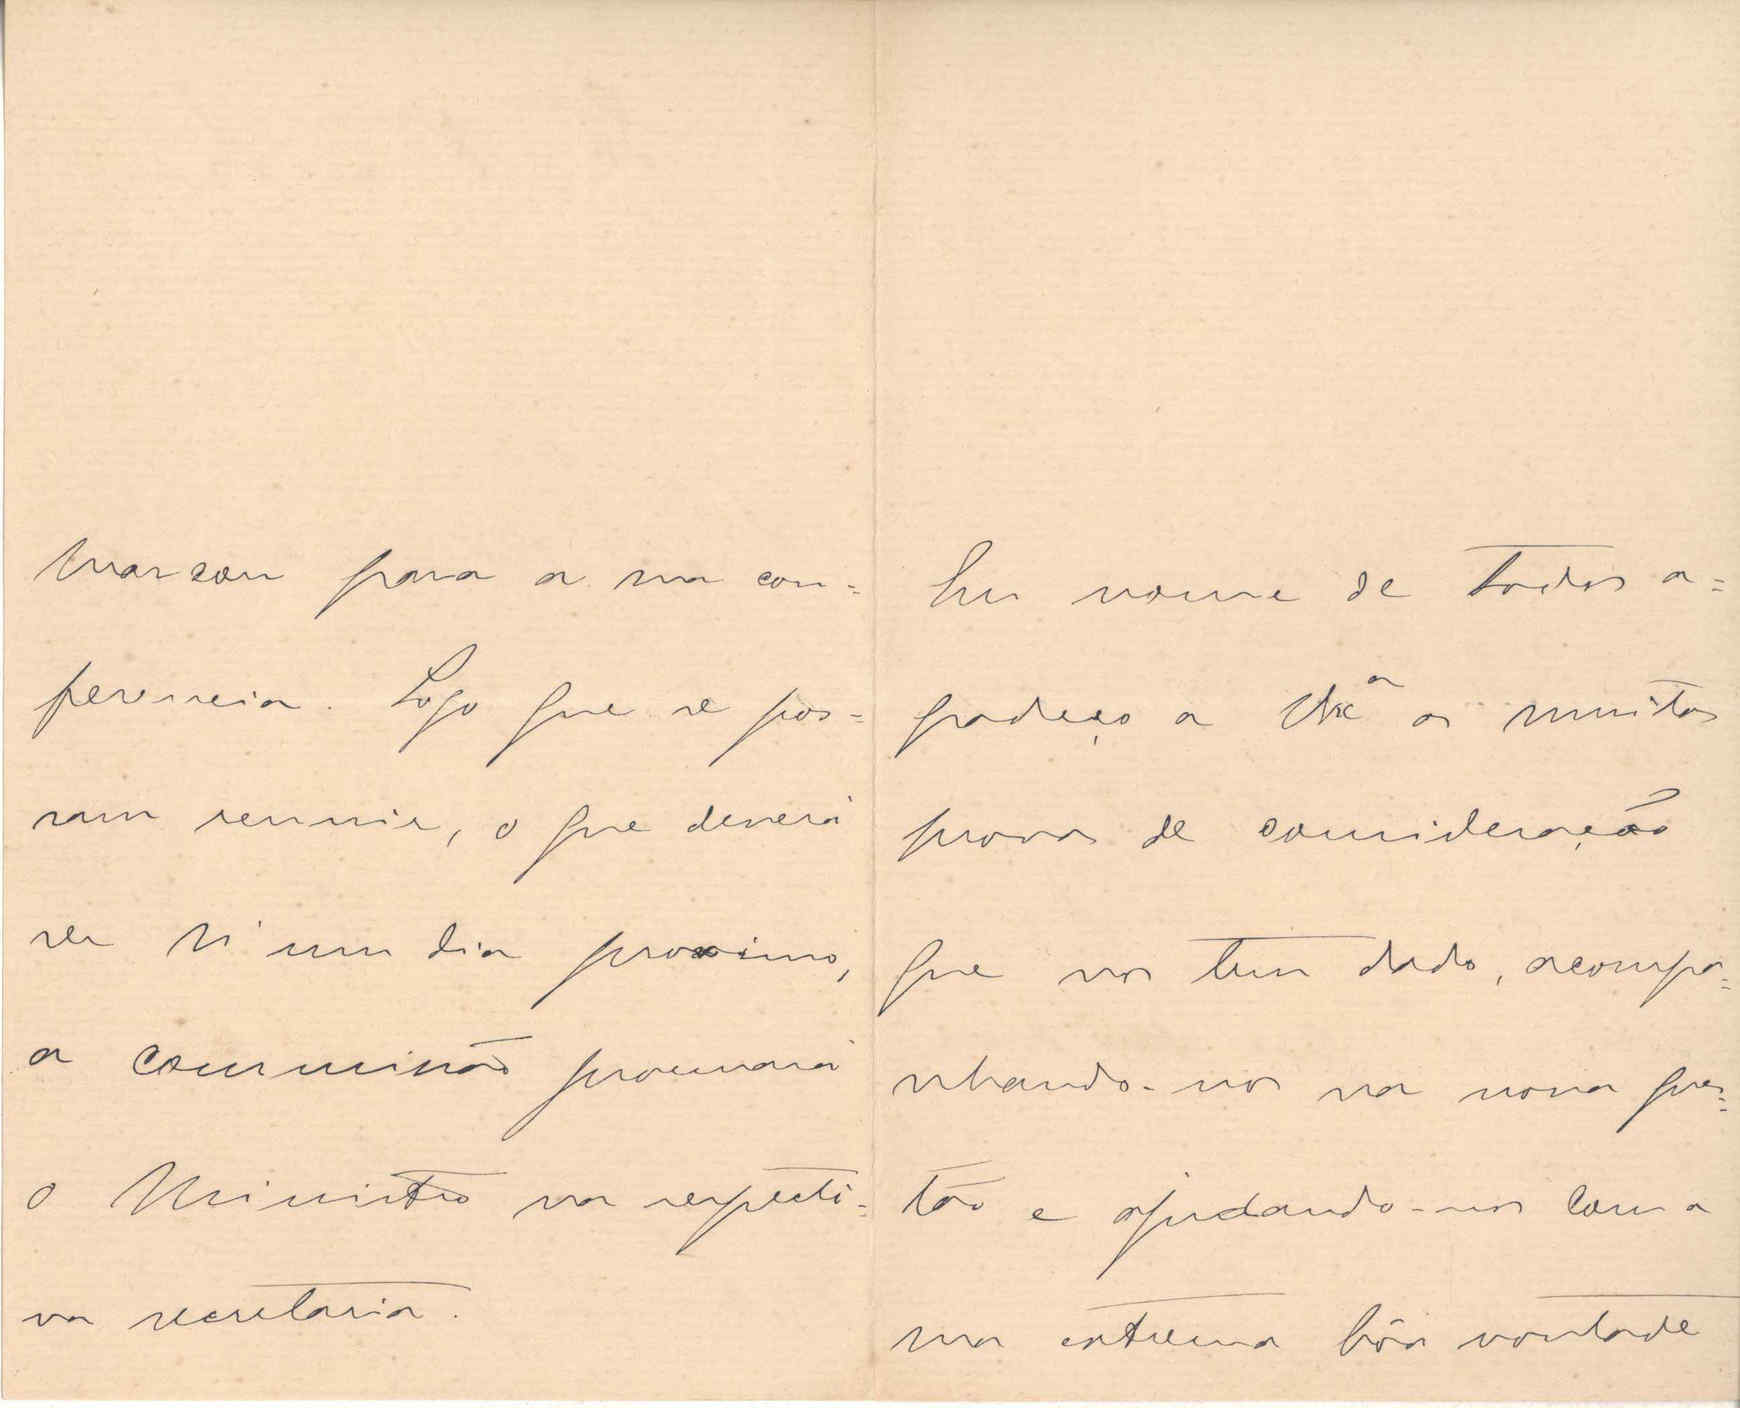 marcou para a sua con=
ferencia. Logo que se pos=
sam reunir, o que deverá
ser n'um dia proximo,
a commissão procurará
o Ministro na respecti=
va secretaria.
Em nome de todos a=
gradeço a Vxª as muitas
provas de consideração
que nos tem dado, acompa=
nhando-nos na nossa ques=
tão e ajudando-nos com a
sua extrema bôa vontade